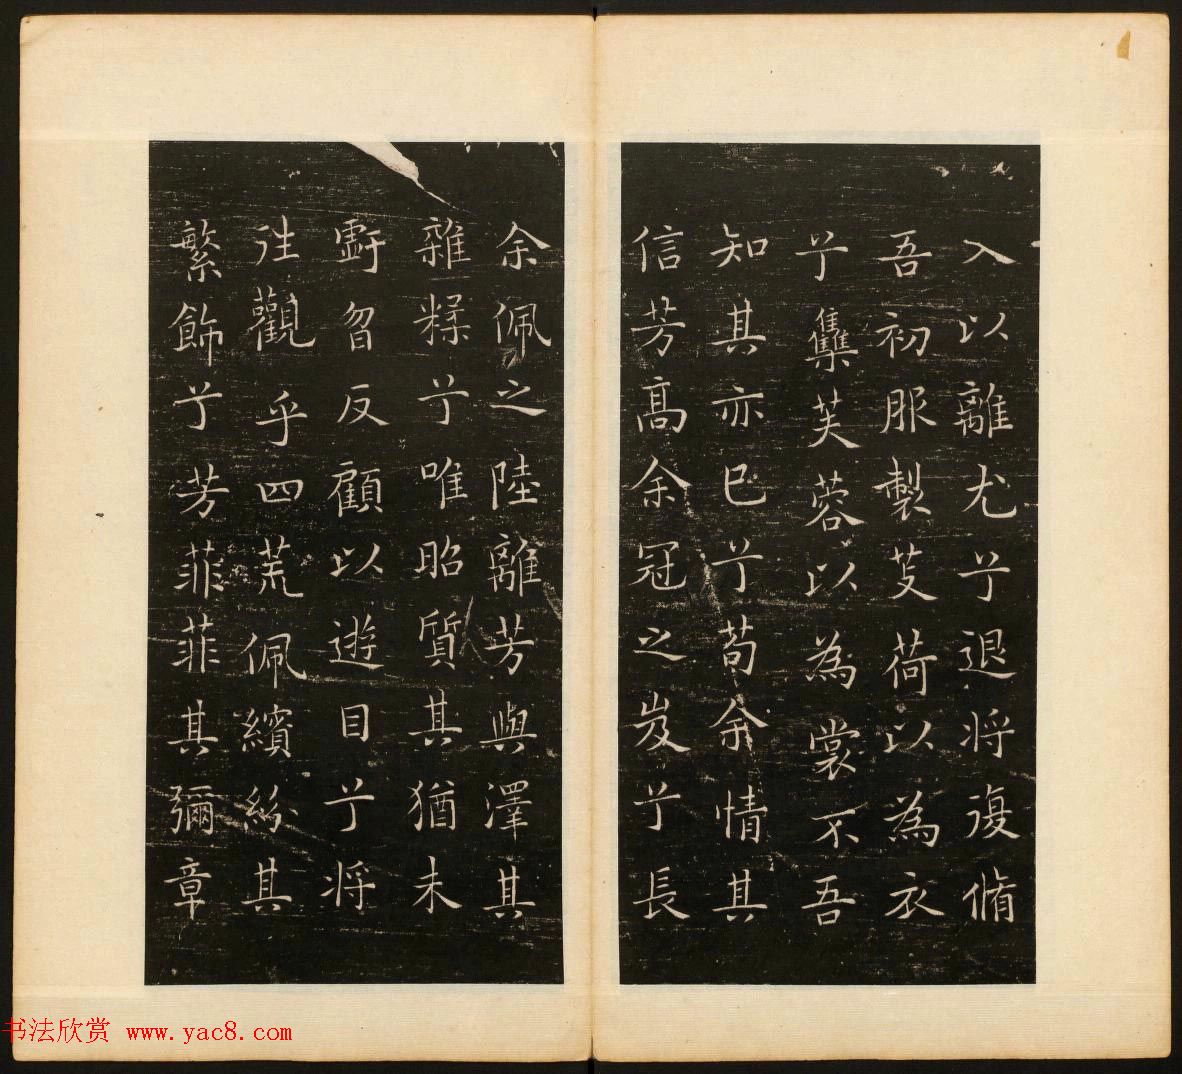 入以離尤兮退将復脩
吾初服製芰荷以為衣
兮集芙蓉以為裳不吾
知其亦已兮苟余情其
信芳高余冠之岌兮長
余佩之陸離芳與澤其
雜糅兮唯昭質其猶未
虧忽反顧以遊目兮将
往觀乎四荒佩繽紛其
繁飾兮芳菲菲其彌章
书法欣赏 www.yac8.com